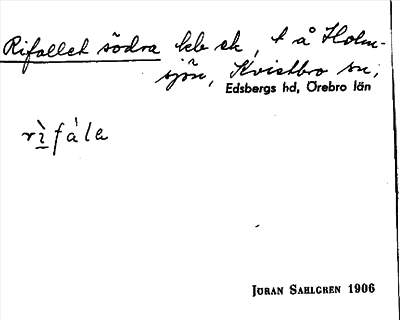 Rifallet södra
sjön, Kvistbro sn;
Edsbergs hd, Örebro län
rìfàla
JÖRAN SAHLGREN 1906